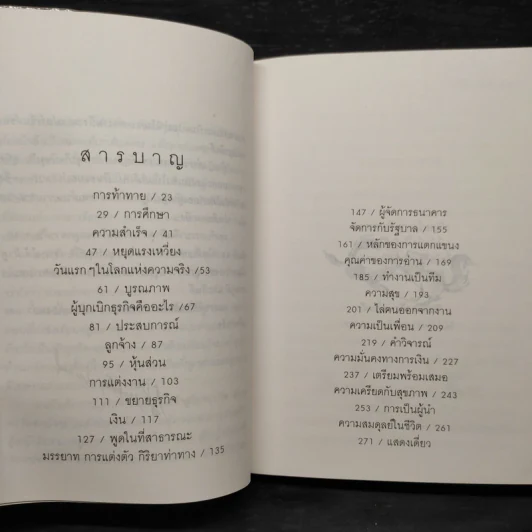 สารบาญ
การท้าทาย / 23
29 / การศึกษา
ความสำเร็จ / 41
47 / หยุดแรงเหวี่ยง
วันแรกๆในโลกแห่งความจริง /53
61 / บูรณภาพ
ผู้บุกเบิกธุรกิจคืออะไร /67
81 / ประสบการณ์
ลูกจ้าง / 87
95 / หุ้นส่วน
การแต่งงาน / 103
111 / ขยายธุรกิจ
เงิน / 117
127 / พูดในที่สาธารณะ
มรรยาท การแต่งตัว กิริยาท่าทาง / 135
147 / ผู้จัดการธนาคาร
จัดการกับรัฐบาล / 155
161 / หลักของการแตกแขนง
คุณค่าของการอ่าน / 169
185 / ทำงานเป็นทีม
ความสุข / 193
201 / ไล่คนออกจากงาน
ความเป็นเพื่อน / 209
219 / คำวิจารณ์
ความมั่นคงทางการเงิน / 227
237 / เตรียมพร้อมเสมอ
ความเครียดกับสุขภาพ / 243
253 / การเป็นผู้นำ
ความสมดุลย์ในชีวิต / 261
271 / แสดงเดี่ยว